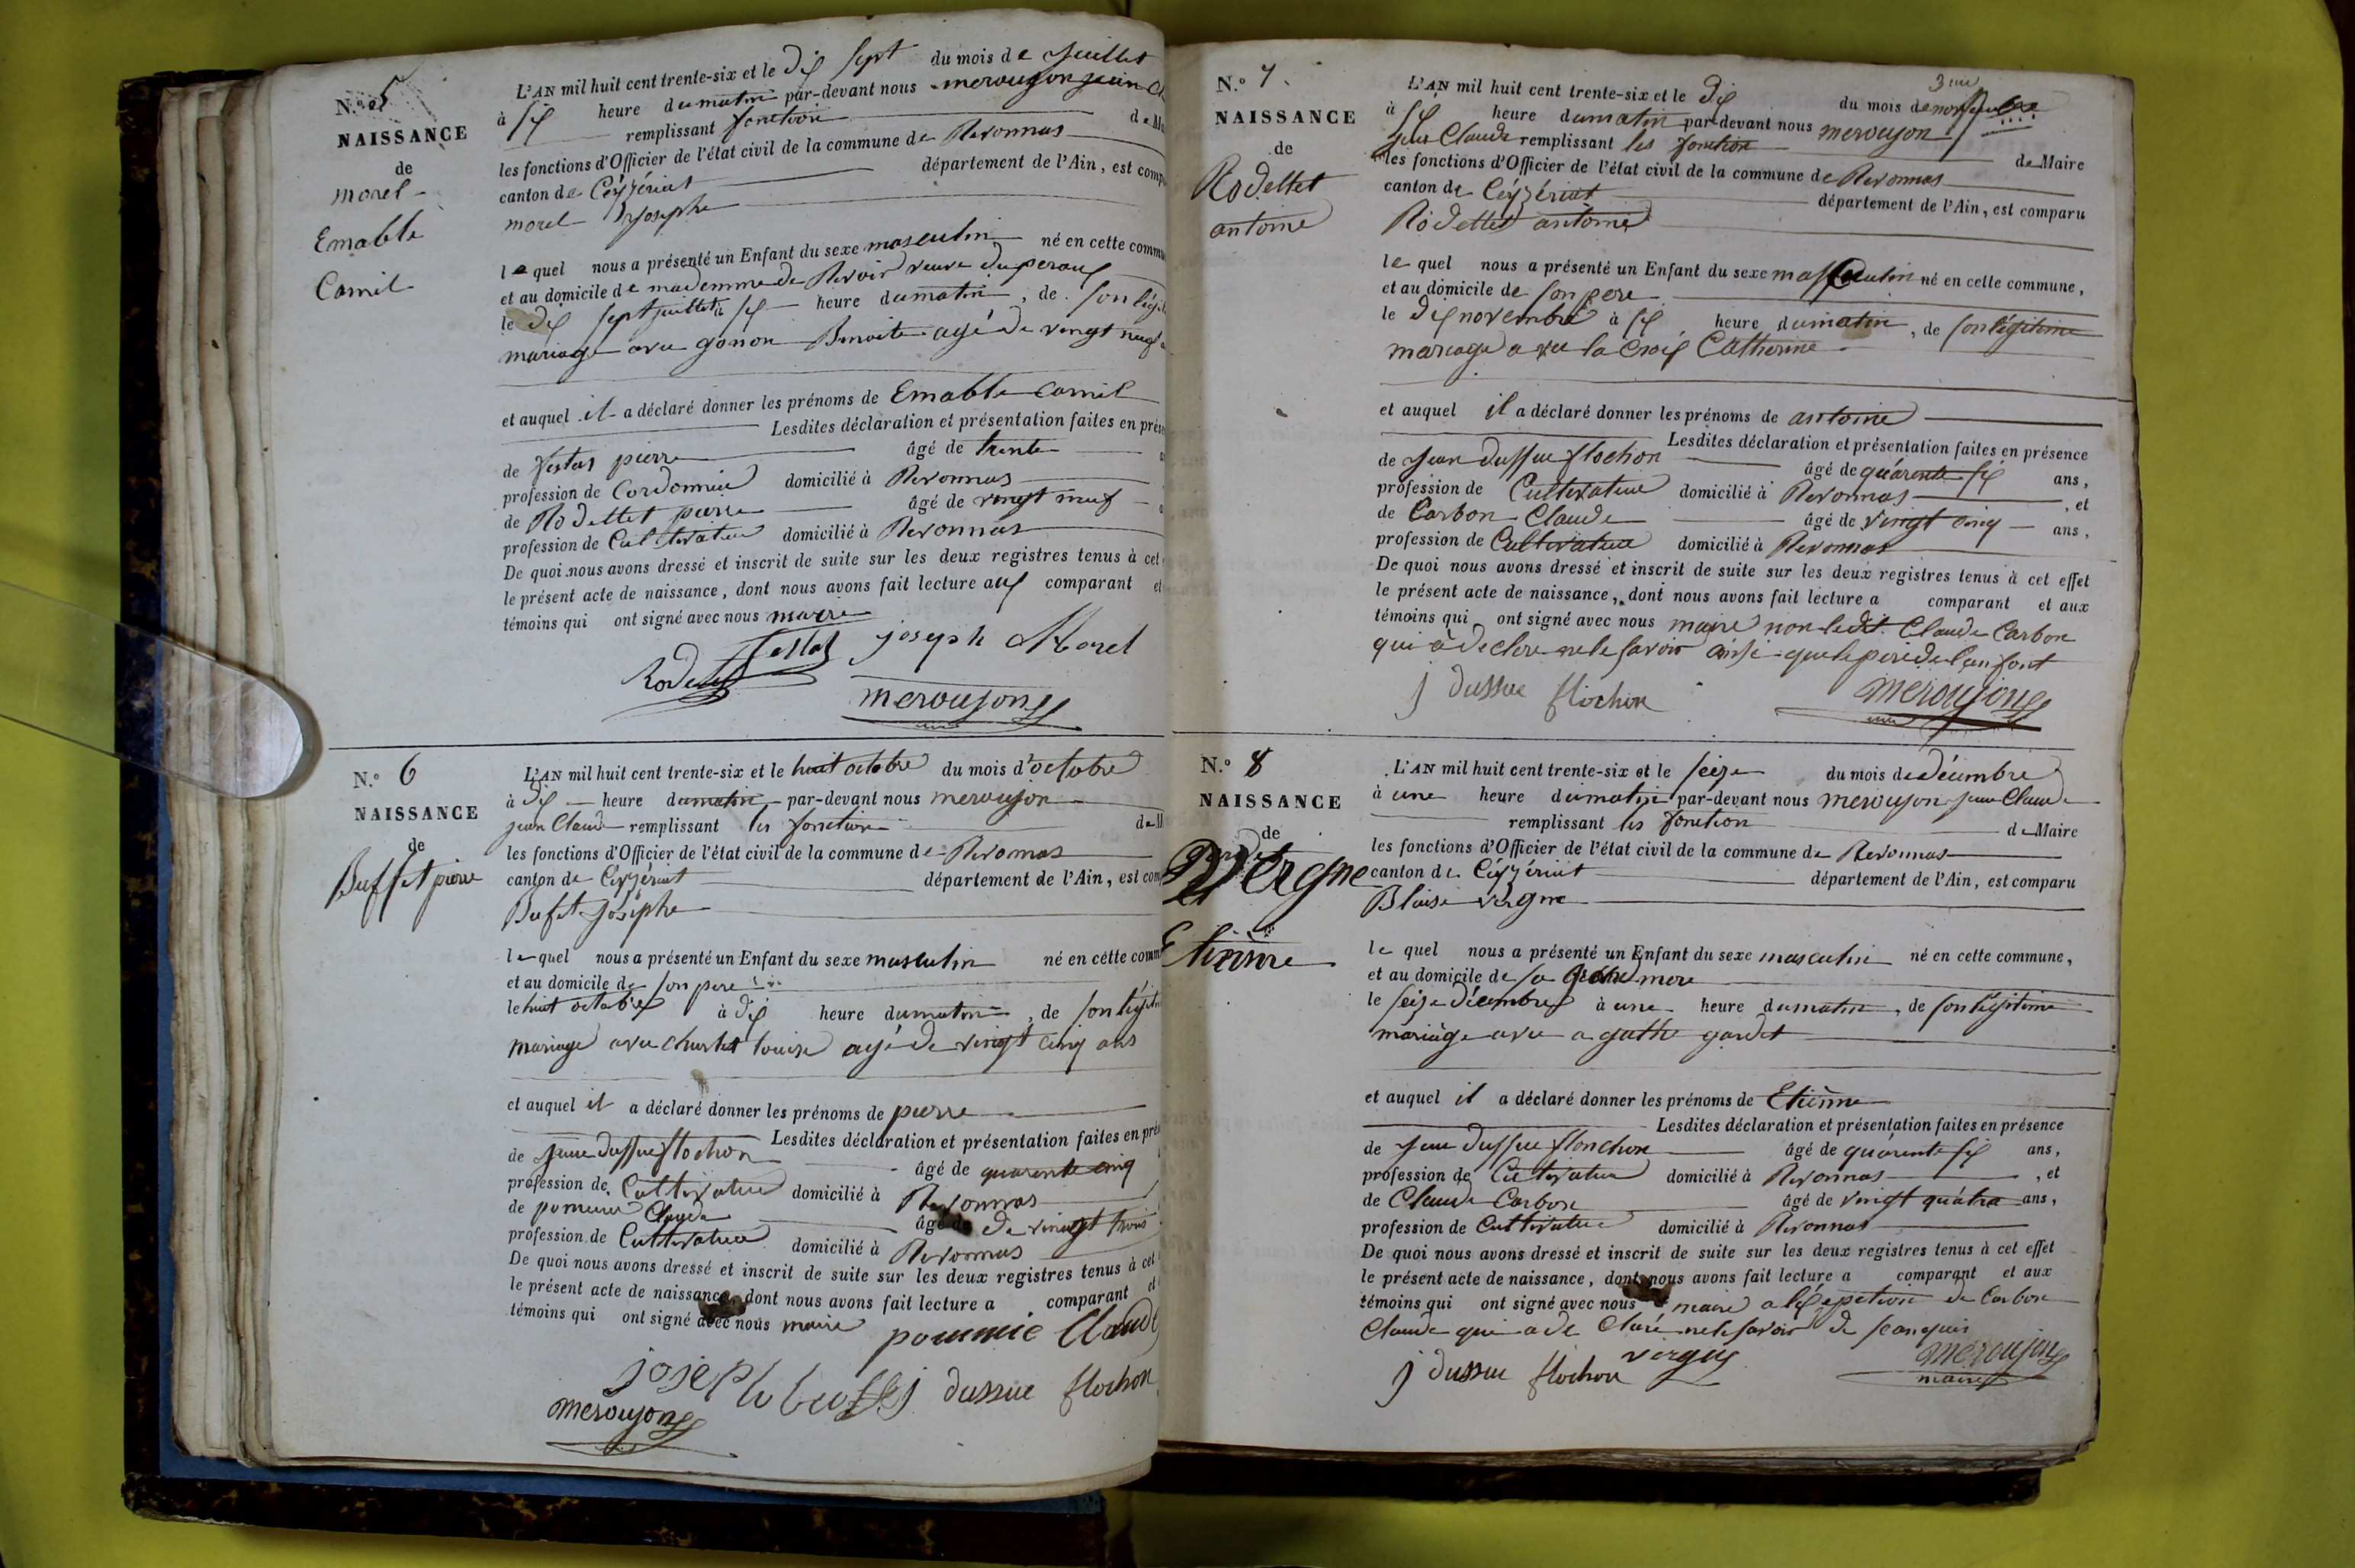 N.º 5
NAISSANCE
de
morel
Emable
Camil
L'AN mil huit cent trente-six et le dix sept du mois de Juillet
à six heure du matin par-devant nous merougon jean
remplissant fonction de
les fonctions d'Officier de l'état civil de la commune de Revonnas
canton de Ceyzériat département de l'Ain, est comp
morel Josephe
le quel nous a présenté un Enfant du sexe masculin né en cette commu
et au domicile de mademme de Revoir veuve Duperoux
le dix sept juillet à six heure du matin, de son légi
mariage avec gonon Benoite agé de vingt neuf
et auquel il a déclaré donner les prénoms de Emable Camil
Lesdites déclaration et présentation faites en prése
de festas pierre âgé de trente
profession de Cordonnié domicilié à Revonnas
de Rodettet pierre âgé de vingt neuf
profession de Cultivateur domicilié à Revonnas
De quoi nous avons dressé et inscrit de suite sur les deux registres tenus à cet
le présent acte de naissance, dont nous avons fait lecture aux comparant et
témoins qui ont signé avec nous maire
festas joseph Morel
Rodettet
meroujon
N.º 6
NAISSANCE
de
Buffet pierre
L'AN mil huit cent trente-six et le huit octobre du mois d'octobre
à dix heure du matin par-devant nous meroujon
jean Claude remplissant les fonction de M
les fonctions d'Officier de l'état civil de la commune de Revonnas
canton de Ceyzériat département de l'Ain, est com
Bufet Joséphe
le quel nous a présenté un Enfant du sexe masculin né en cette comm
et au domicile de son pere
le huit octobre à dix heure du matin, de son légiti
mariage avec Charlet louise agé de vingt cinq ans
et auquel il a déclaré donner les prénoms de pierre
Lesdites déclaration et présentation faites en pré
de jean dussue flochon âgé de quarente cinq
profession de Cultivateur domicilié à Revonnas
de pomier Claude âgé de de vinngt trois
profession de Cultivateur domicilié à Revonnas
De quoi nous avons dressé et inscrit de suite sur les deux registres tenus à cet
le présent acte de naissance, dont nous avons fait lecture a comparant et
témoins qui ont signé avec nous maire
pommie Claude
joseph buffet j dussue flochon
meroujon
N.º 7
NAISSANCE
de
Rodettet
antoine
3me
L'AN mil huit cent trente-six et le dix du mois de novembre
à six heure du matin par-devant nous meroujon
jean Claude remplissant les fonction de Maire
les fonctions d'Officier de l'état civil de la commune de Revonnas
canton de Céyzériat département de l'Ain, est comparu
Rodettet antoine
le quel nous a présenté un Enfant du sexe masculin né en cette commune,
et au domicile de son pere
le dix novembre à six heure du matin, de son légitime
mariage a vec la Croix Catherine
et auquel il a déclaré donner les prénoms de antoine
Lesdites déclaration et présentation faites en présence
de Jean dussue flochon âgé de quarente six ans,
profession de Cultivateur domicilié à Revonnas, et
de Carbon Claude âgé de vingt cinq ans,
profession de Cultivateur domicilié à Revonnas
De quoi nous avons dressé et inscrit de suite sur les deux registres tenus à cet effet
le présent acte de naissance, dont nous avons fait lecture a comparant et aux
témoins qui ont signé avec nous maire non ledit Claude Carbon
qui à declere ne le savoir ainsi que le pere de l'enfant
j dussue flochon meroujon
N.º 8
NAISSANCE
de
Vergne
Etiènne
L'AN mil huit cent trente-six et le seize du mois de décembre
à une heure du matin par-devant nous meroujon jean Claude
remplissant les fonction de Maire
les fonctions d'Officier de l'état civil de la commune de Revonnas
canton de Céyzériat département de l'Ain, est comparu
Blaise Vergne
le quel nous a présenté un Enfant du sexe masculin né en cette commune,
et au domicile de sa mere
le seize décembre à une heure du matin, de son légitime
mariàge avec agathe gardet
et auquel il a déclaré donner les prénoms de Etiènne
Lesdites déclaration et présentation faites en présence
de Jean dussue flonchon âgé de quarente six ans,
profession de Cultivateur domicilié à Revonnas, et
de Claude Carbon âgé de vingt quatre ans,
profession de Cultivateur domicilié à Revonnas
De quoi nous avons dressé et inscrit de suite sur les deux registres tenus à cet effet
le présent acte de naissance, dont nous avons fait lecture a comparant et aux
témoins qui ont signé avec nous maire a léxepetion de Carbon
Claude qui a de Claré ne le savoir de
j dussue flochon vergne meroujon
maire